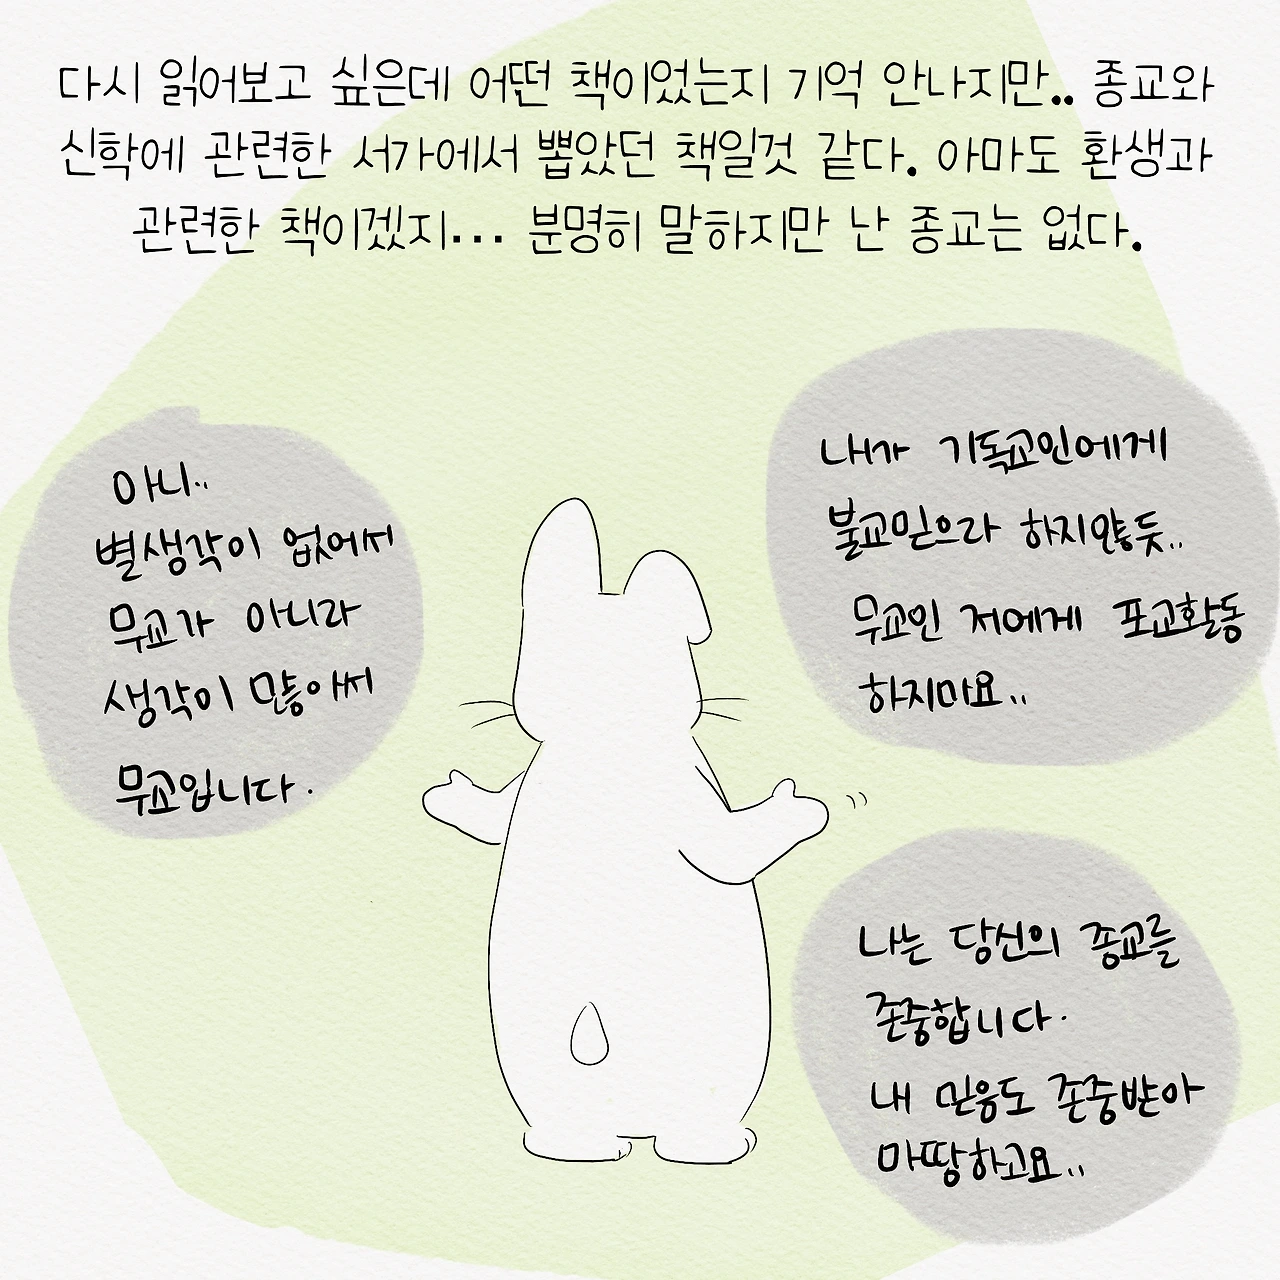 다시 읽어보고 싶은데 어떤 책이었는지 기억 안나지만.. 종교와
신학에 관련한 서가에서 뽑았던 책일것 같다. 아마도 환생과
관련한 책이겠지... 분명히 말하지만 난 종교는 없다.
아니..
별생각이 없어서
무교가 아니라
생각이 많아써
무교입니다.
내가 기독교인에게
불교믿으라 하지않듯..
무교인 저에게 포교활동
하지마요..
나는 당신의 종교를
존중합니다.
내 믿음도 존중받아
마땅하고요..